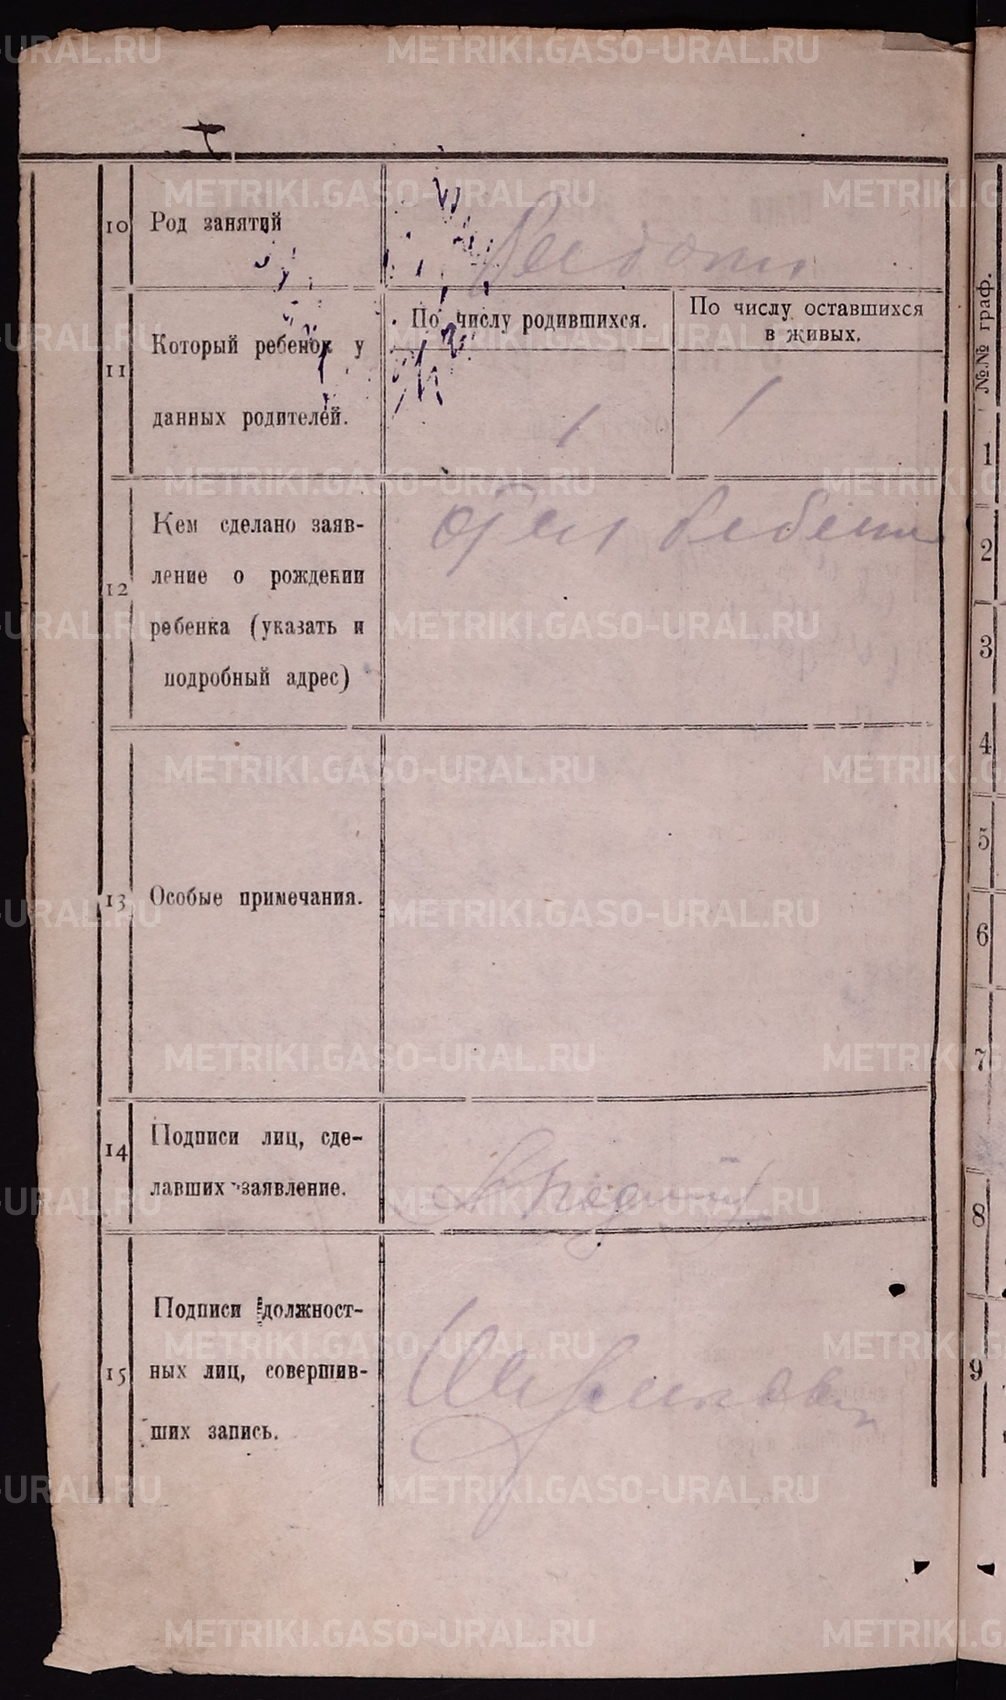 METRIKI.GASO-URAL.RU
10 Род занятий
11 Который ребенок у
данных родителей.
По числу родившихся.
По числу оставшихся
в живых.
1 1
12 Кем сделано заяв-
ление о рождении
ребенка (указать и
подробный адрес)
13 Особые примечания.
14 Подписи лиц, сде-
лавших заявление.
15 Подписи должност-
ных лиц, совершив-
ших запись.
№№ граф.
1
2
3
4
5
6
7
8
9